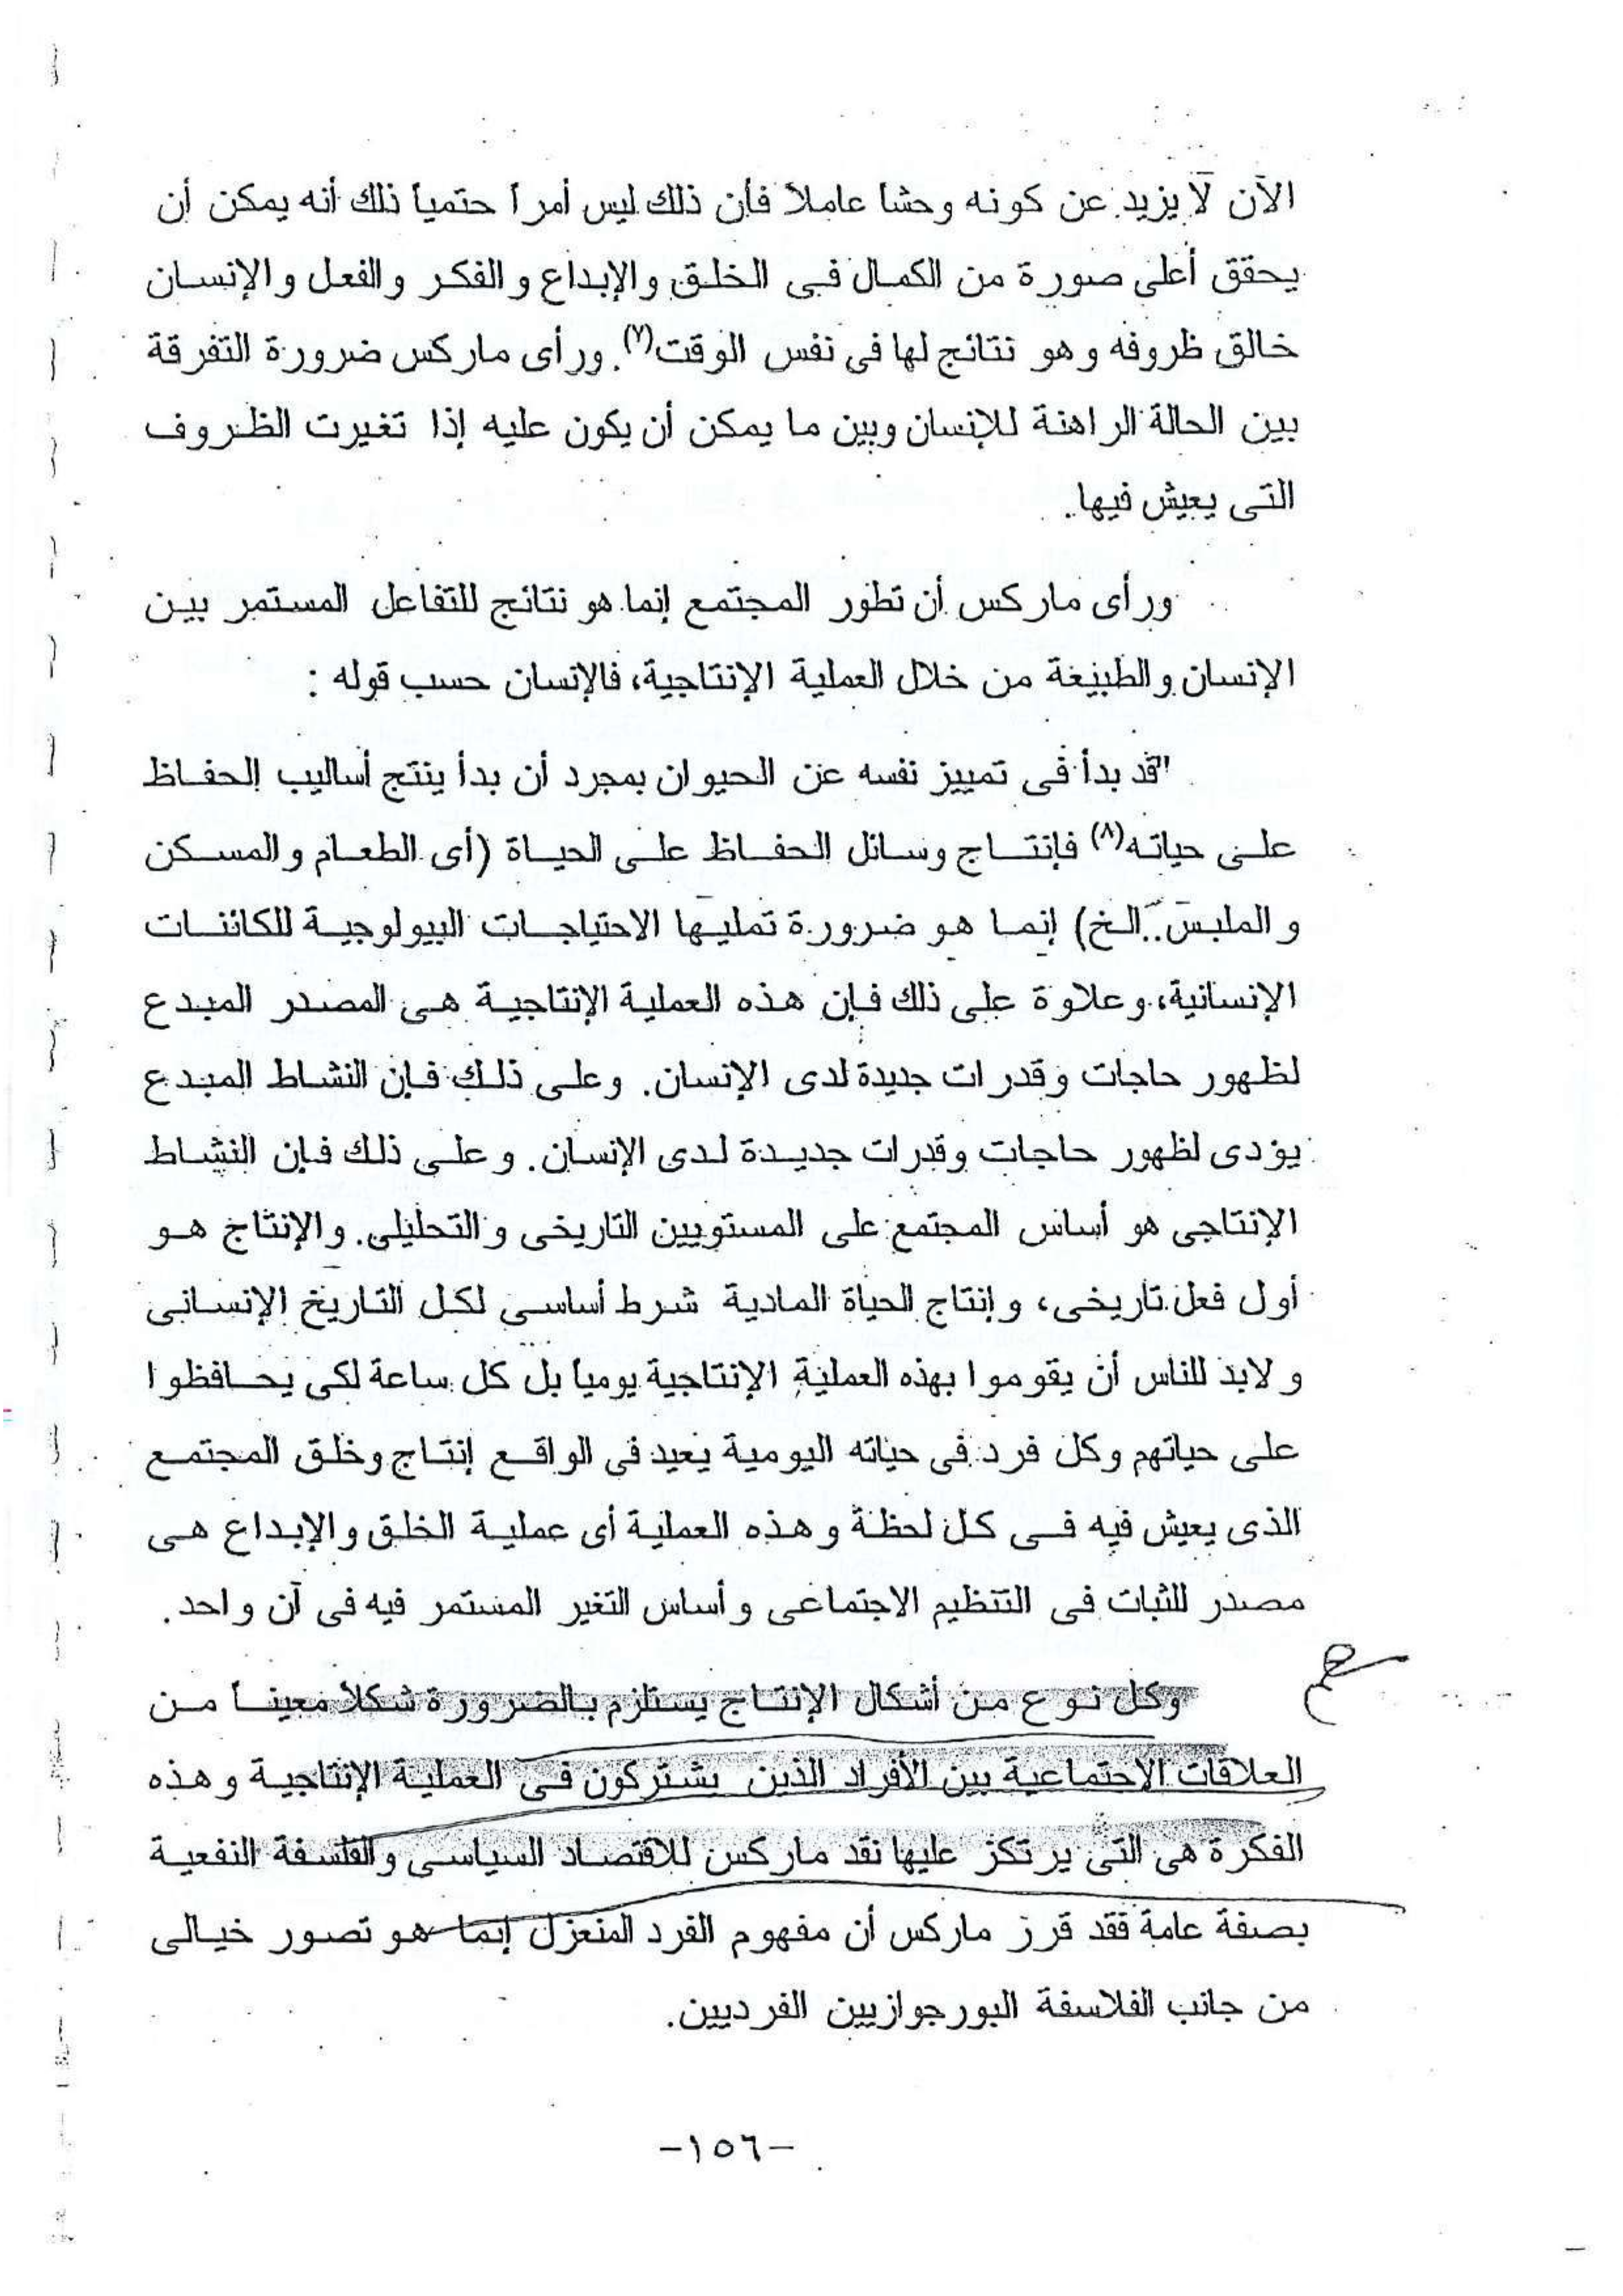 الآن لا يزيد عن كونه وحشا عاملاً فأن ذلك ليس أمراً حتمياً ذلك أنه يمكن أن
يحقق أعلى صورة من الكمال فى الخلق والإبداع والفكر والفعل والإنسان
خالق ظروفه وهو نتائج لها فى نفس الوقت(٧). ورأى ماركس ضرورة التفرقة
بين الحالة الراهنة للإنسان وبين ما يمكن أن يكون عليه إذا تغيرت الظروف
التى يعيش فيها.
ورأى ماركس أن تطور المجتمع إنما هو نتائج للتفاعل المستمر بين
الإنسان والطبيعة من خلال العملية الإنتاجية، فالإنسان حسب قوله :
"قد بدأ فى تمييز نفسه عن الحيوان بمجرد أن بدأ ينتج أساليب الحفاظ
على حياته(٨) فإنتاج وسائل الحفاظ على الحياة (أى الطعام والمسكن
والملبس..الخ) إنما هو ضرورة تمليها الاحتياجات البيولوجية للكائنات
الإنسانية، وعلاوة على ذلك فإن هذه العملية الإنتاجية هى المصدر المبدع
لظهور حاجات وقدرات جديدة لدى الإنسان. وعلى ذلك فإن النشاط المبدع
يؤدى لظهور حاجات وقدرات جديدة لدى الإنسان. وعلى ذلك فإن النشاط
الإنتاجى هو أساس المجتمع على المستويين التاريخى والتحليلى. والإنتاج هو
أول فعل تاريخى، وإنتاج الحياة المادية شرط أساسى لكل التاريخ الإنسانى
ولابد للناس أن يقوموا بهذه العملية الإنتاجية يومياً بل كل ساعة لكى يحافظوا
على حياتهم وكل فرد فى حياته اليومية يعيد فى الواقع إنتاج وخلق المجتمع
الذى يعيش فيه فى كل لحظة وهذه العملية أى عملية الخلق والإبداع هى
مصدر للثبات فى التنظيم الاجتماعى وأساس التغير المستمر فيه فى آن واحد.
وكل نوع من أشكال الإنتاج يستلزم بالضرورة شكلاً معيناً من
العلاقات الاجتماعية بين الأفراد الذين يشتركون فى العملية الإنتاجية وهذه
الفكرة هى التى يرتكز عليها نقد ماركس للاقتصاد السياسى والفلسفة النفعية
بصفة عامة فقد قرر ماركس أن مفهوم الفرد المنعزل إنما هو تصور خيالى
من جانب الفلاسفة البورجوازيين الفرديين.
-١٥٦-